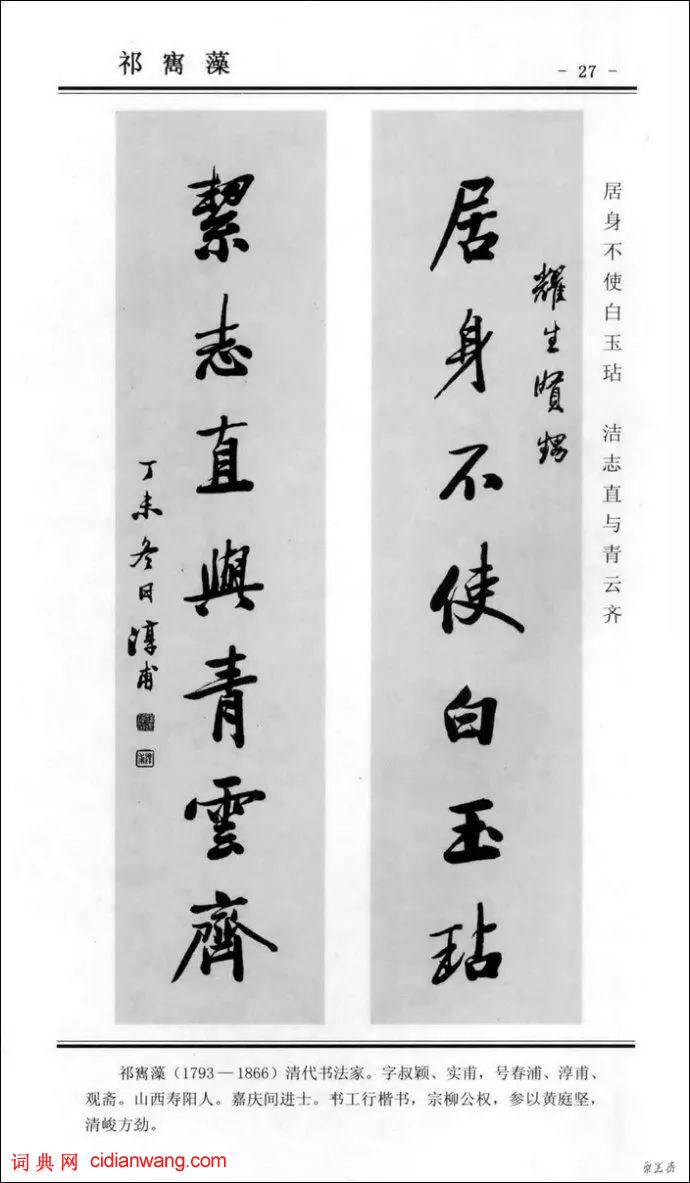 祁寯藻
- 27 -
居身不使白玉玷　洁志直与青云齐
耀生贤甥
居身不使白玉玷
絜志直與青雲齊
丁未冬日淳甫
祁寯藻（1793—1866）清代书法家。字叔颖、实甫，号春浦、淳甫、
观斋。山西寿阳人。嘉庆间进士。书工行楷书，宗柳公权，参以黄庭坚，
清峻方劲。
词典网 cidianwang.com